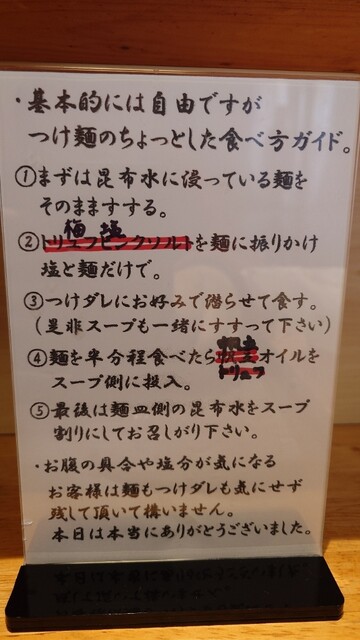 ・基本的には自由ですが
つけ麺のちょっとした食べ方ガイド。
①まずは昆布水に浸っている麺を
そのまますする。
梅塩
②トリュフピンクソルトを麺に振りかけ
塩と麺だけで。
③つけダレにお好みで潜らせて食す。
(是非スープも一緒にすすって下さい)
④麺を半分程食べたらオイルを
トリュフ
スープ側に投入。
⑤最後は麺皿側の昆布水をスープ
割りにしてお召しがり下さい。
・お腹の具合や塩分が気になる
お客様は麺もつけダレも気にせず
残して頂いて構いません。
本日は本当にありがとうございました。